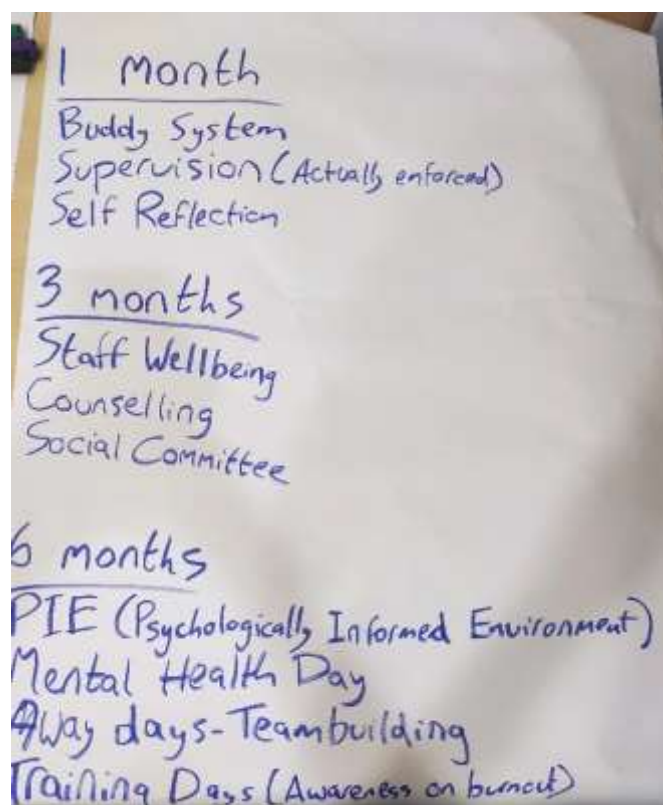 1 Month
Buddy System
Supervision (Actually enforced)
Self Reflection
3 months
Staff Wellbeing
Counselling
Social Committee
6 months
PIE (Psychologically Informed Environment)
Mental Health Day
Away days - Teambuilding
Training Days (Awareness on burnout)